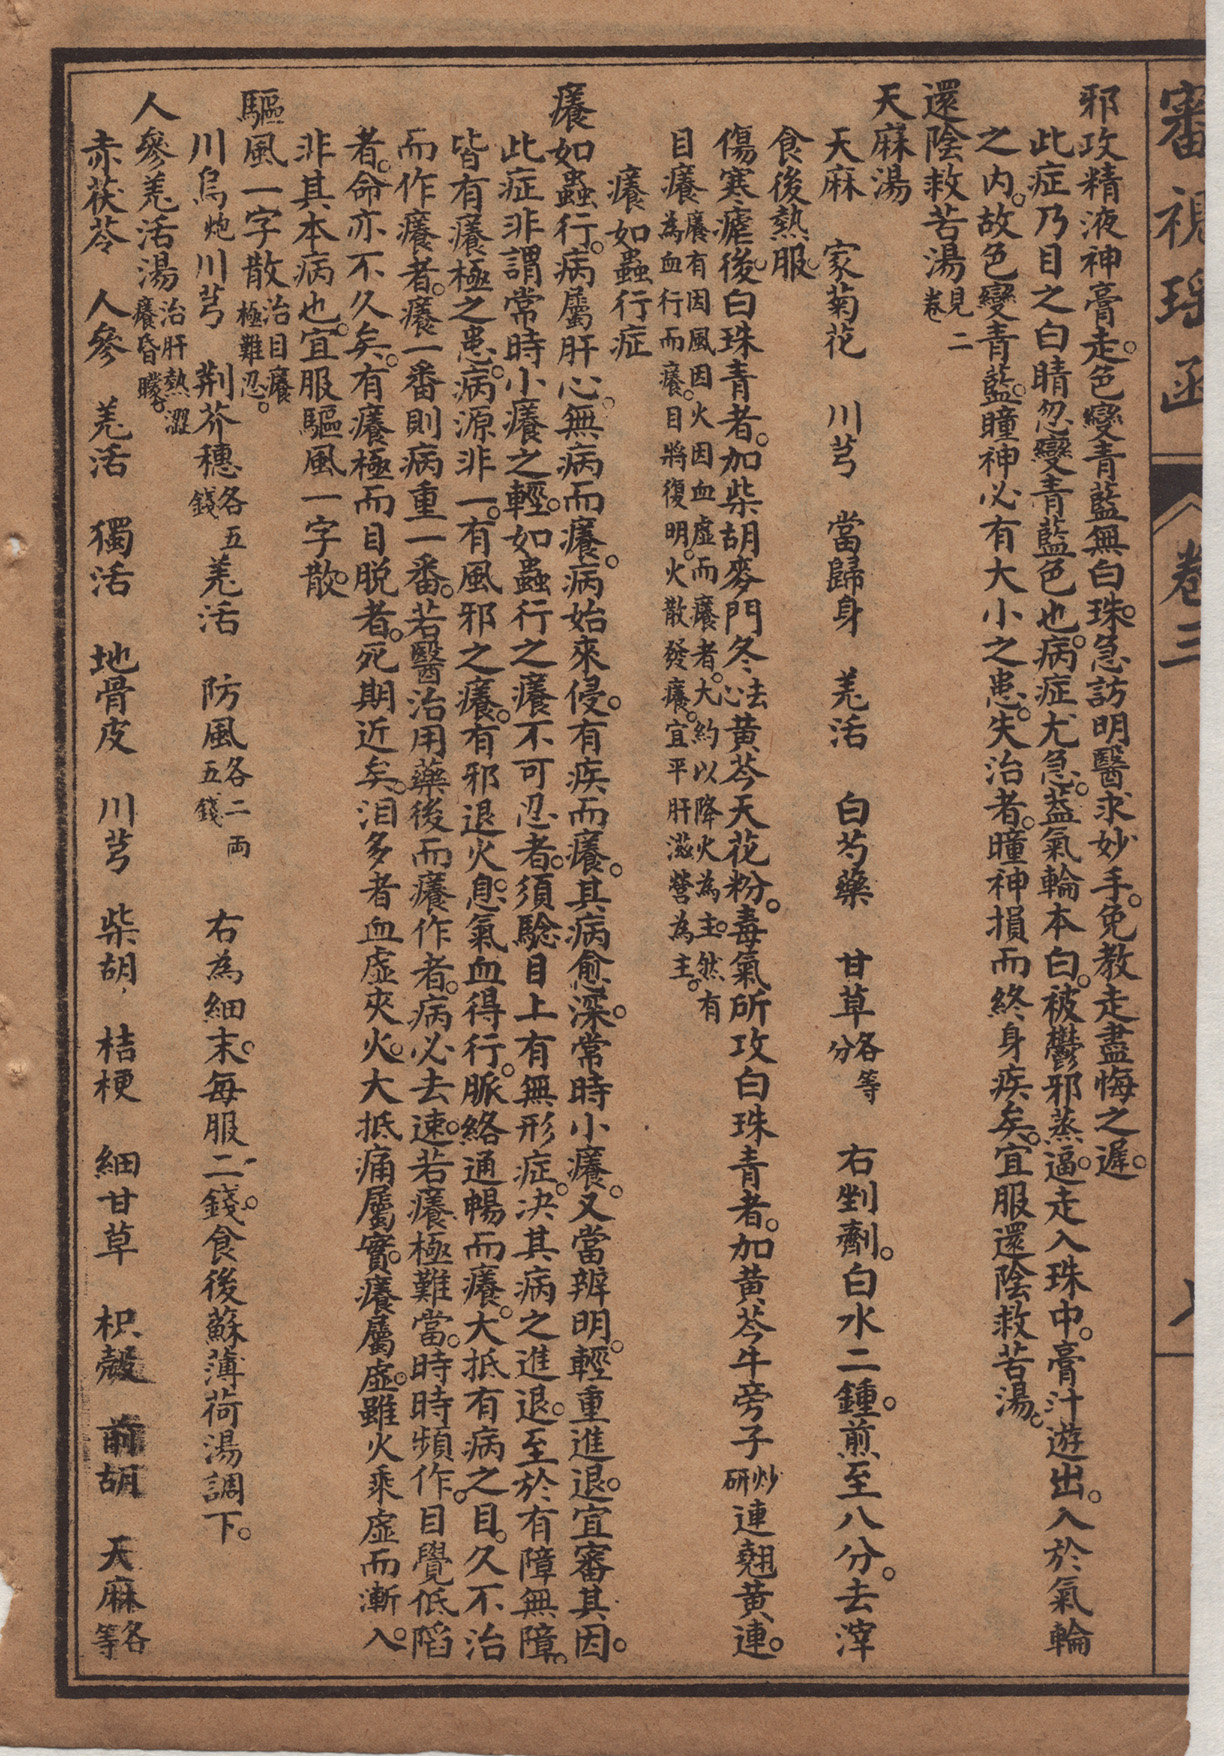 審視瑶函 卷三
邪政精液神膏走。色變青藍無白珠。急訪明醫求妙手。免教走盡悔之遲。
此症乃目之白睛忽變青藍色也。病症尤急。蓋氣輪本白。被鬱邪蒸逼。走入珠中。膏汁遊出。入於氣輪
之內。故色變青藍。瞳神必有大小之患。失治者。瞳神損而終身疾矣。宜服還陰救苦湯。
還陰救苦湯見二卷
天麻湯
天麻 家菊花 川芎 當歸身 羌活 白芍藥 甘草各等分 右剉劑。白水二鍾。煎至八分。去滓
食後熱服。
傷寒瘧後。白珠青者。加柴胡麥門冬去心黃芩天花粉。毒氣所攻白珠青者。加黃芩牛旁子炒研連翹黃連。
目癢癢有因風因火因血虛而癢者。大約以降火為主。然有為血行而癢。目將復明。火散發癢。宜平肝滋營為主。
癢如蟲行症
癢如蟲行。病屬肝心。無病而癢。病始來侵。有疾而癢。其病愈深。常時小癢。又當辨明。輕重進退。宜審其因。
此症非謂常時小癢之輕。如蟲行之癢不可忍者。須驗目上有無形症。决其病之進退。至於有障無障。
皆有癢極之患。病源非一。有風邪之癢。有邪退火息。氣血得行。脈絡通暢而癢。大抵有病之目。久不治
而作癢者。癢一番則病重一番。若醫治用藥後而癢作者。病必去速。若癢極難當。時時頻作。目覺低陷
者。命亦不久矣。有癢極而目脫者。死期近矣。泪多者血虛夾火。大抵痛屬實。癢屬虛。雖火乘虛而漸入。
非其本病也。宜服驅風一字散。
驅風一字散治目癢極難忍。
川烏炮川芎 荆芥穗各五錢羌活 防風各二兩五錢 右為細末。每服二錢。食後蘇薄荷湯調下。
人參羌活湯治肝熱澀癢昏矇。
赤茯苓 人參 羌活 獨活 地骨皮 川芎 柴胡 桔梗 細甘草 枳殼 前胡 天麻各等